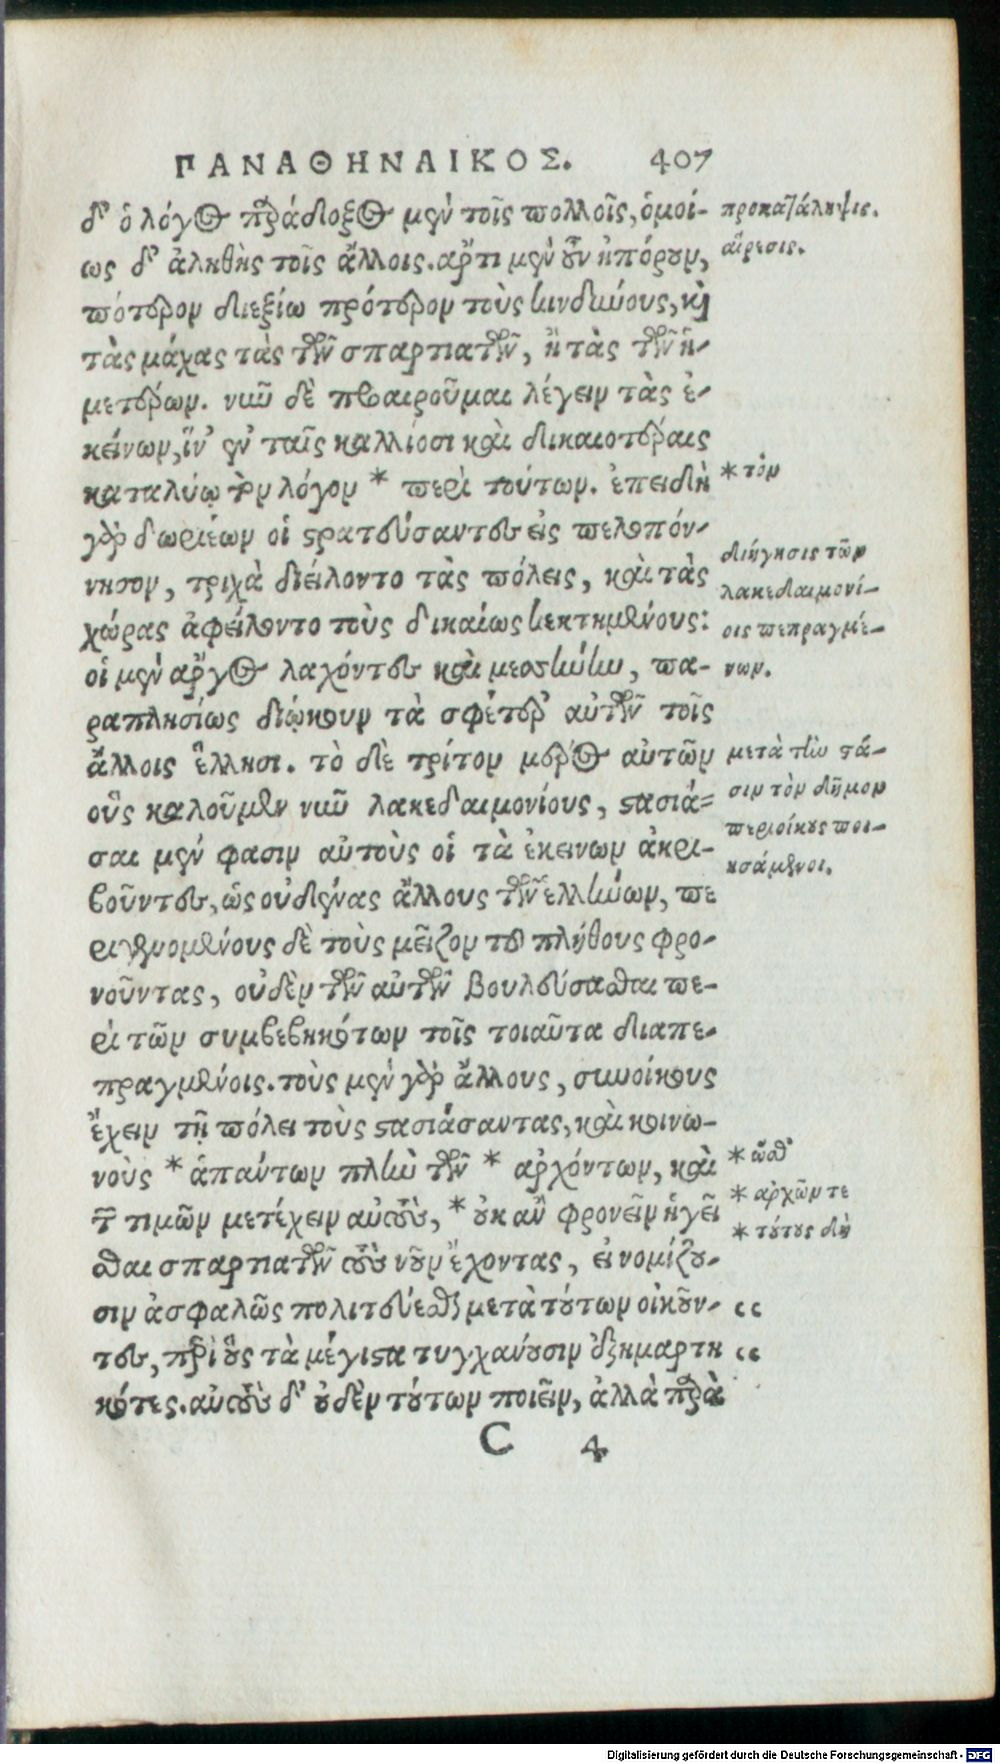 ΠΑΝΑΘΗΝΑΙΚΟΣ. 407
δ' ὁ λόγος παράδοξος μὲν τοῖς πολλοῖς, ὁμοί-
ως δ' ἀληθὴς τοῖς ἄλλοις. ἄρτι μὲν οὖν ἠπόρουν,
πότερον διεξίω πρότερον τοὺς κινδύνους, καὶ
τὰς μάχας τὰς τῶν σπαρτιατῶν, ἢ τὰς τῶν ἡ-
μετέρων. νῦν δὲ προαιροῦμαι λέγειν τὰς ἐ-
κείνων, ἵν' ἐν ταῖς καλλίοσι καὶ δικαιοτέραις
καταλύω τὸν λόγον * περὶ τούτων. ἐπειδὴ
γὰρ δωριέων οἱ στρατεύσαντες εἰς πελοπόν-
νησον, τριχὰ διείλοντο τὰς πόλεις, καὶ τὰς
χώρας ἀφείλοντο τοὺς δικαίως κεκτημένους:
οἱ μὲν ἄργος λαχόντες καὶ μεσσήνην, πα-
ραπλησίως διῴκουν τὰ σφέτερ' αὐτῶν τοῖς
ἄλλοις ἕλλησι. τὸ δὲ τρίτον μέρος αὐτῶν
οὓς καλοῦμεν νῦν λακεδαιμονίους, στασιά-
σαι μέν φασιν αὐτοὺς οἱ τὰ ἐκεινων ἀκρι-
βοῦντες, ὡς οὐδένας ἄλλους τῶν ἑλλήνων, πε
ριγενομένους δὲ τοὺς μεῖζον τοῦ πλήθους φρο-
νοῦντας, οὐδὲν τῶν αὐτῶν βουλεύσασθαι πε-
ρὶ τῶν συμβεβηκότων τοῖς τοιαῦτα διαπε-
πραγμένοις. τοὺς μὲν γὰρ ἄλλους, συνοίκους
ἔχειν τῇ πόλει τοὺς στασιάσαντας, καὶ κοινω-
νοὺς * ἁπάντων πλὴν τῶν * ἀρχόντων, καὶ
τῶν τιμῶν μετέχειν αὐτοὺς, * οὐκ ἂν φρονεῖν ἡγεῖ
σθαι σπαρτιατῶν τοὺς νοῦν ἔχοντας, εἰ νομίζου-
σιν ἀσφαλῶς πολιτεύεσθαι μετὰ τούτων οἰκοῦν-
τες, περὶ οὓς τὰ μέγιστα τυγχάνουσιν ἐξημαρτη
κότες. αὐτοὺς δ' οὐδὲν τούτων ποιεῖν, ἀλλὰ παρὰ
C 4
προκατάληψις.
αἵρεσις.
* τὸν
διήγησις τῶν
λακεδαιμονί-
οις πεπραγμέ-
νων.
μετὰ τὴν στά-
σιν τὸν δῆμον
περιοίκους ποι-
ησάμενοι.
* ὥσθ'
* ἀρχῶν τε
* τούτους δὴ
“
“
Digitalisierung gefördert durch die Deutsche Forschungsgemeinschaft - DFG